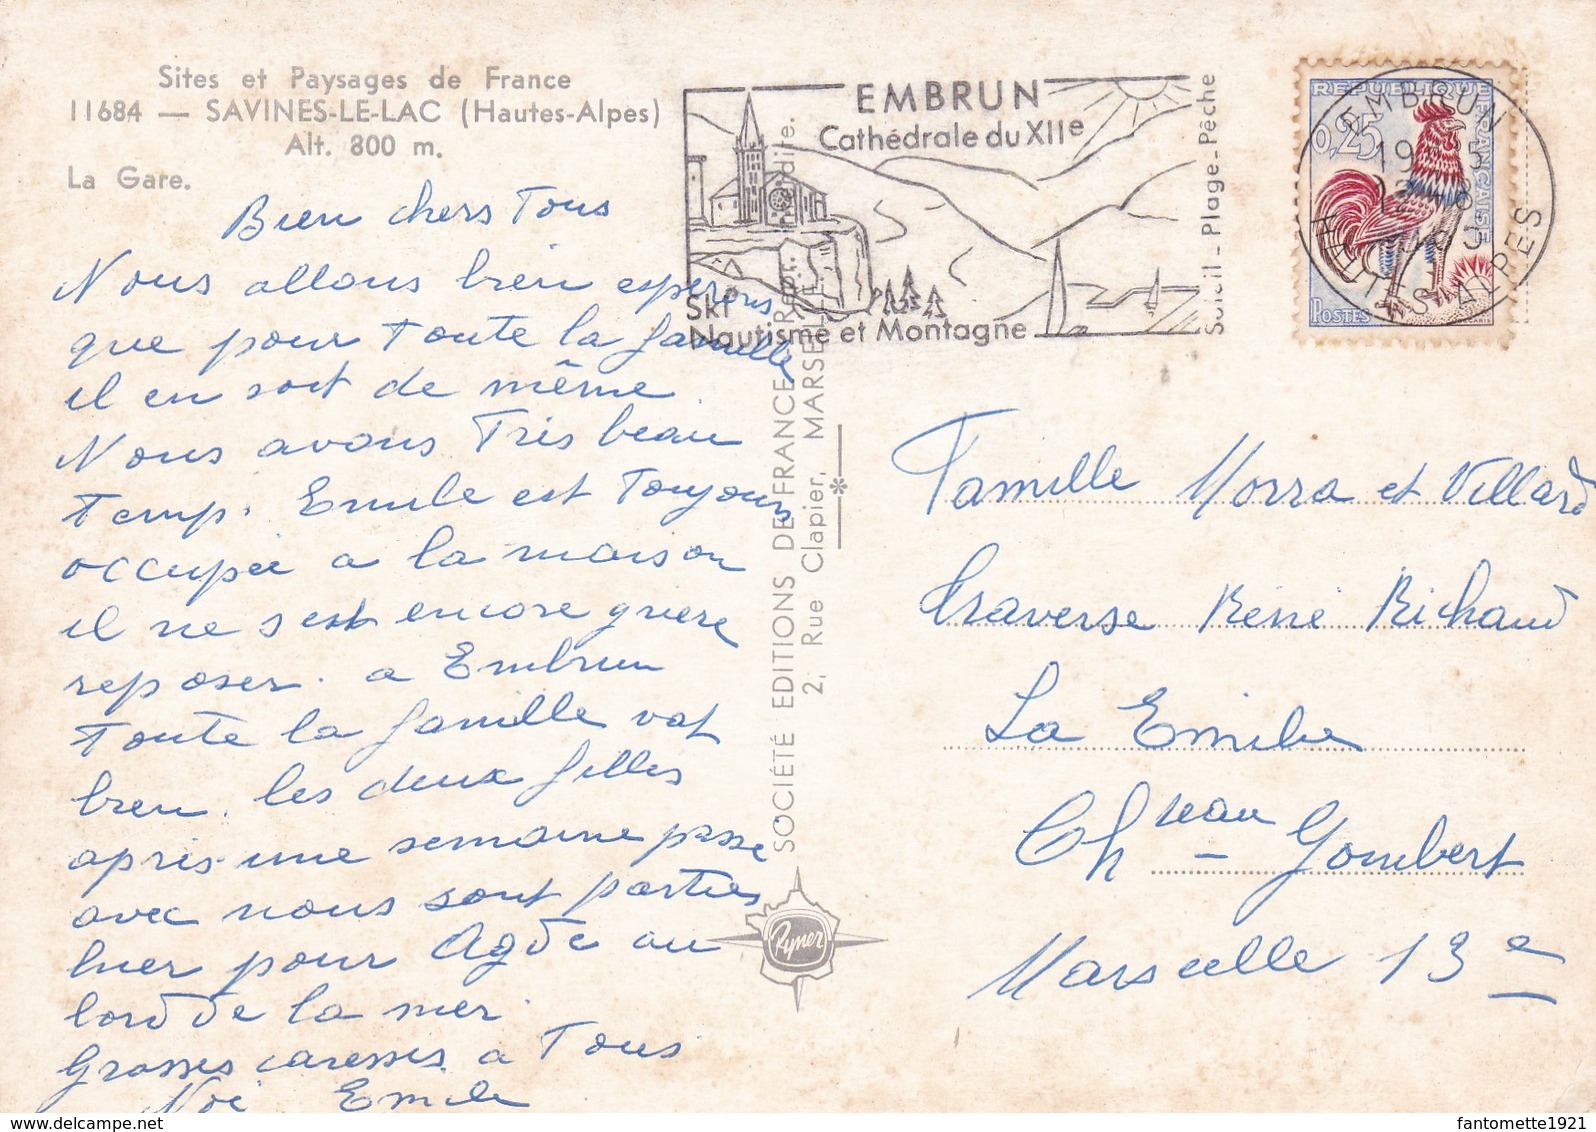 Sites et Paysages de France
11684 — SAVINES-LE-LAC (Hautes-Alpes)
Alt. 800 m.
La Gare.
Bien chers Tous
Nous allons bien esperons
que pour toute la famille
il en soit de même
Nous avons Très beau
Temp. Emile est Toujours
occupée a la maison
il ne s'est encore guere
reposer. a Embrun
Toute la famille vat
bien. les deux filles
apris une semaine passe
avec nous sont parties
hier pour Agde au
bord de la mer.
Grosses caresses a Tous
Emile
SOCIÉTÉ EDITIONS DE FRANCE
2, Rue Clapier, MARSEILLE
Rymer
EMBRUN
Cathédrale du XIIe
Ski
Nautisme et Montagne
Soleil - Plage - Pêche
REPUBLIQUE FRANÇAISE
0,25
POSTES
EMBRUN
HAUTES ALPES
Famille Morra et Villard
Traverse Réné Richaud
La Emilie
Chreau - Gombert
Marseille 13e
fantomette1921